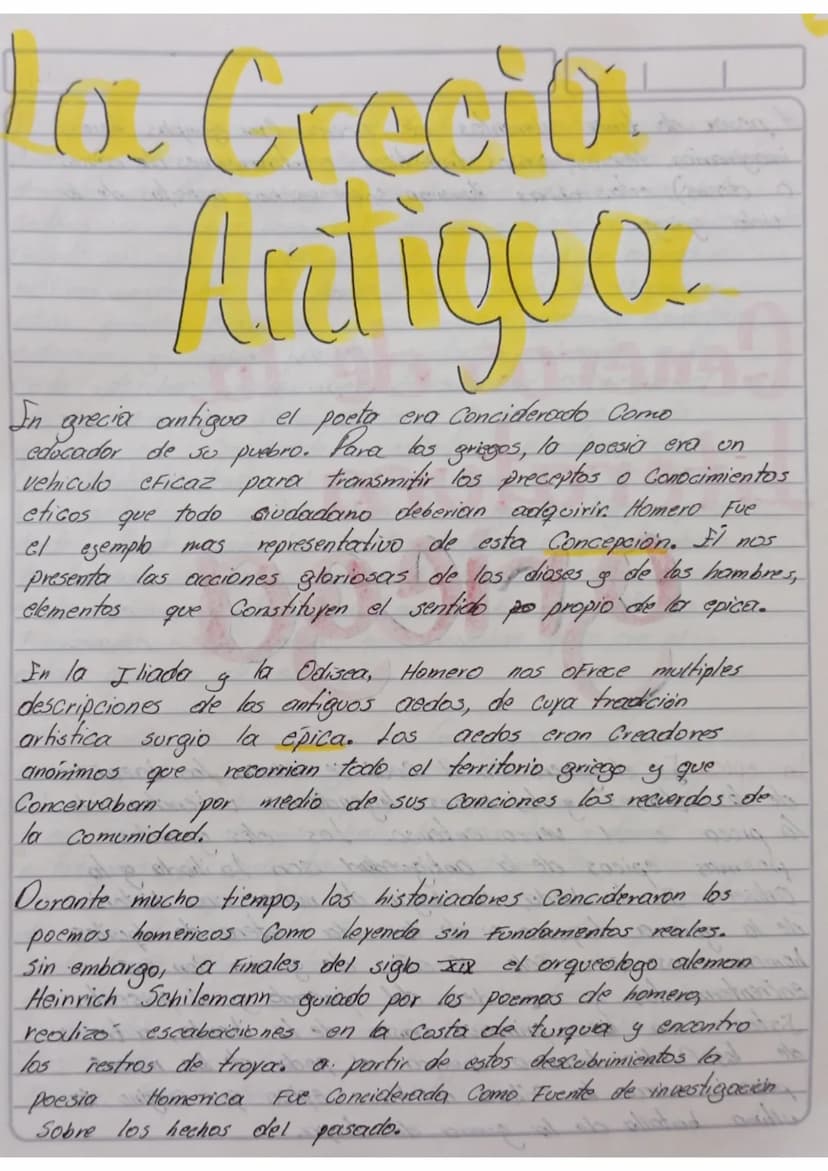 La Grecia
Antigua
En grecia antigua el poeta era Conciderado Como
educador de su puebro. Para los griegos, la poesia era un
vehiculo eficaz para transmitir los preceptos o Conocimientos
eticos que todo ciudadano deberian adquirir. Homero Fue
el ejemplo mas representativo de esta Concepción. Él nos
presenta las acciones gloriosas de los dioses y de los hombres,
elementos que Constituyen el sentido propio de la epica.
En la Iliada y la Odisea, Homero nos ofrece multiples
descripciones de los antiguos aedos, de cuya tradición
artistica surgio la épica. Los aedos eran Creadores
anónimos que recorrian todo el territorio griego y que
Concervaban por medio de sus canciones los recuerdos de
la Comunidad.
Durante mucho tiempo, los historiadores Concideraron los
poemas homericos Como leyenda sin Fundamentos reales.
Sin embargo, a Finales del siglo XIX el arqueologo aleman
Heinrich Schilemann guiado por los poemas de homero,
realizo escabaciones en la Costa de turquia y encontro
los restros de troya. a partir de estos descubrimientos la
poesia Homerica Fue Conciderada Como Fuente de investigación
Sobre los hechos del pasado.